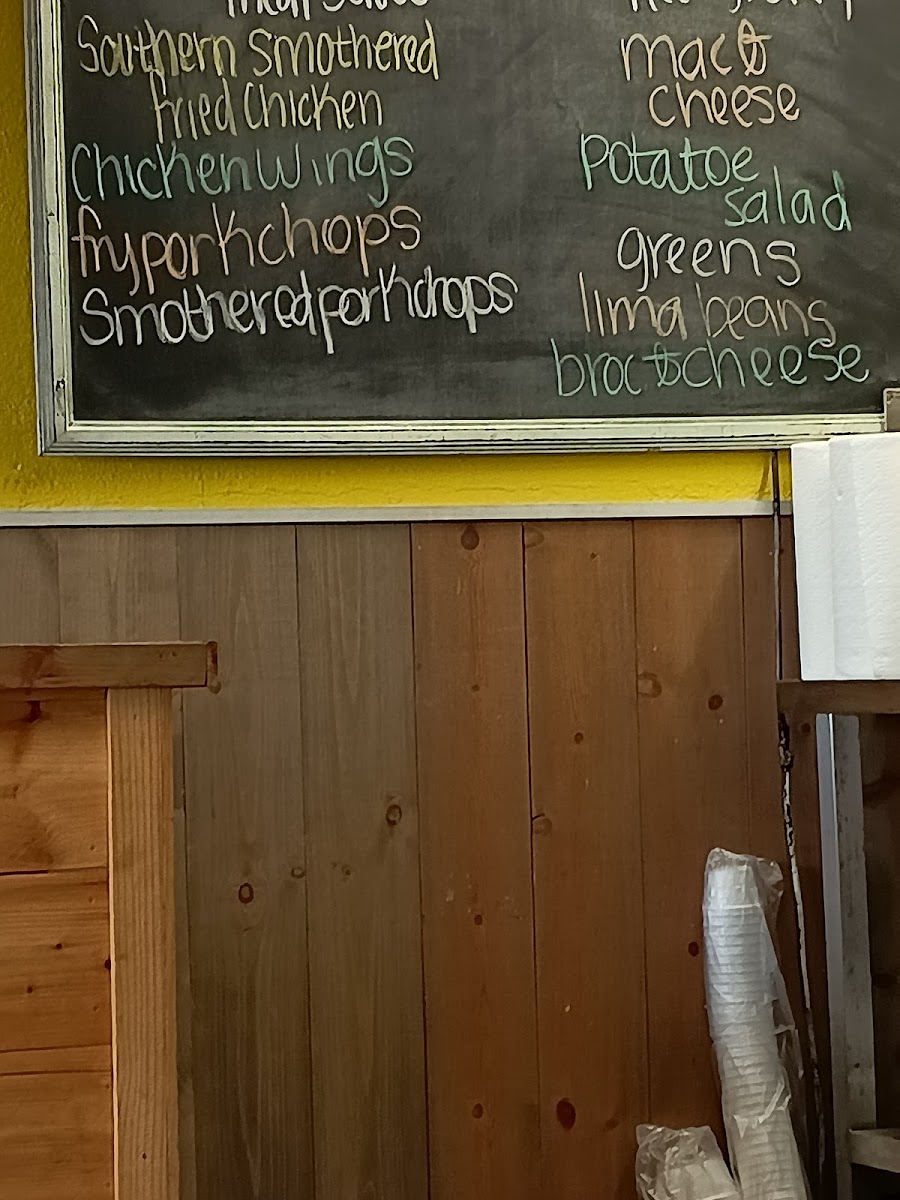 Southern Smothered
fried Chicken
Chicken Wings
fry porkchops
Smothered porkchops
mac &
cheese
Potatoe
salad
greens
lima beans
broc & cheese